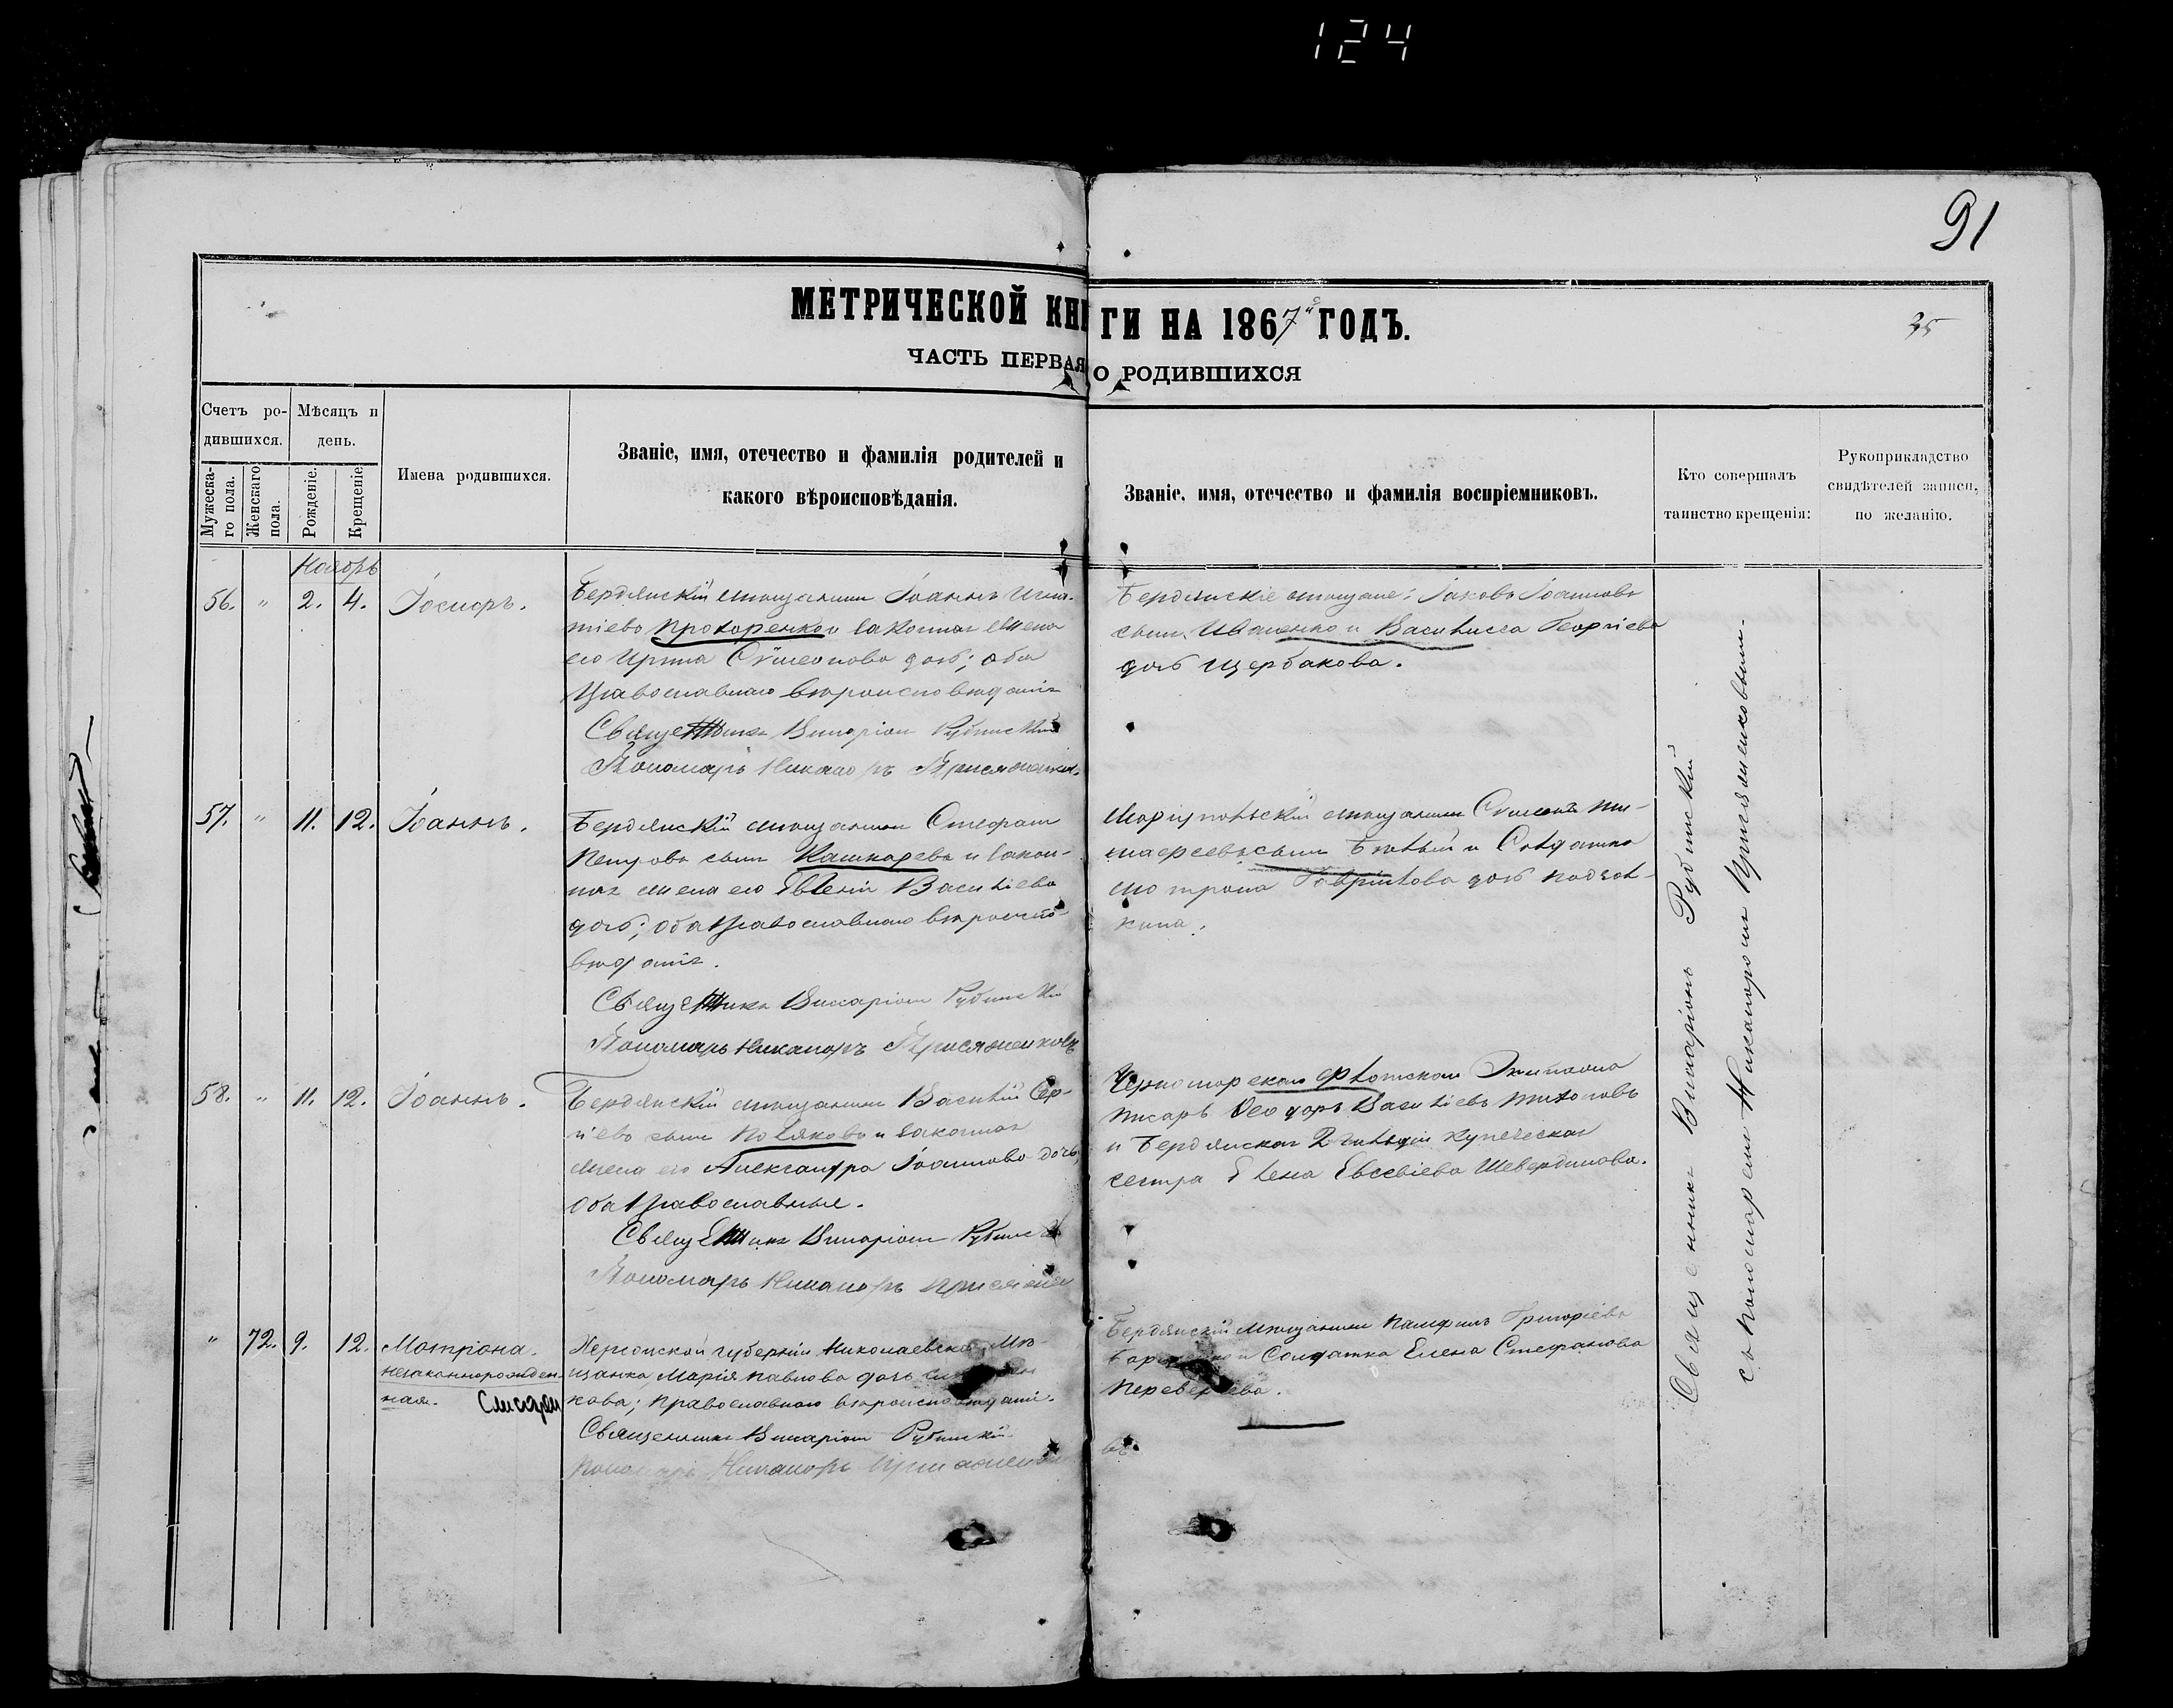 124
91
МЕТРИЧЕСКОЙ КНИГИ НА 1867й ГОДЪ.
35
ЧАСТЬ ПЕРВАЯ О РОДИВШИХСЯ
Счетъ ро-
дившихся.
Мужеска-
го пола.
Женскаго
пола.
Мѣсяцъ и
день.
Рожденіе.
Крещеніе.
Имена родившихся.
Званіе, имя, отечество и фамилія родителей и
какого вѣроисповѣданія.
Званіе, имя, отечество и фамилія воспріемниковъ.
Кто совершалъ
таинство крещенія:
Рукоприкладство
свидѣтелей записи,
по желанію.
Ноябрь
56. " 2. 4. Іосифъ.
Бердянскій мѣщанинъ Іоаннъ Игна-
тіевъ Прохоренко и законная жена
его Ирина Сѵмеонова дочь; оба
Православнаго вѣроисповѣданія
Священникъ Виссаріонъ Рубинскій
Пономарь Никаноръ
Бердянскіе мѣщане: Іаковъ Іоанновъ
сынъ Иваненко и Василисса Георгіева
дочь Щербакова.
57. " 11. 12. Іоаннъ.
Бердянскій мѣщанинъ Стефанъ
Петровъ сынъ Кашкаревъ и закон-
ная жена его Евгенія Василіева
дочь; оба Православнаго вѣроиспо-
вѣданія.
Священникъ Виссаріонъ Рубинскій
Пономарь Никаноръ Присяженковъ
Маріупольскій мѣщанинъ Сѵмеонъ Ти-
мофеевъ сынъ Бѣлый и Солдатка
Мотрона Гавріилова дочь
58. " 11. 12. Іоаннъ.
Бердянскій мѣщанинъ Василій Сер-
гіевъ сынъ Поляковъ и законная
жена его Александра Іоаннова дочь,
оба Православные.
Священникъ Виссаріонъ
Пономарь Никаноръ
Черноморскаго флотскаго Экипажа
писарь Ѳеодоръ Василіевъ Тихоновъ
и Бердянская 2 гильдіи купеческая
сестра Елена Евсевіева Шевердинова.
" 72. 9. 12. Мотрона.
незаконнорожден-
ная.
Херсонской губерніи Николаевская Мѣ-
щанка Марія Павлова дочь
кова; Православнаго вѣроисповѣданія.
Священникъ Виссаріонъ Рубинскій
Пономарь Никаноръ
Бердянскій мѣщанинъ Памфилъ Григоріевъ
и Солдатка Елена Стефанова
Священникъ Виссаріонъ Рубинскій
съ пономаремъ Никаноромъ Присяженковымъ.